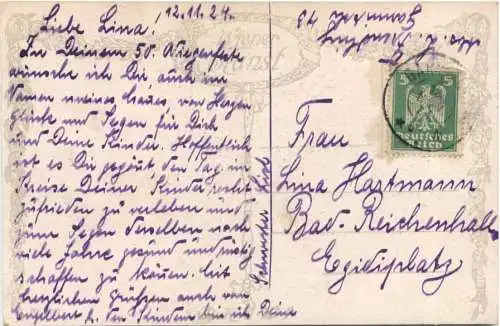 Liebe Lina! 12.11.24.
Zu Deinem 50. Wiegenfeste
wünsche ich Dir auch im
Namen meines Hauses von Herzen
Glück und Segen für Dich
und Deine Kinder. Hoffentlich
ist es Dir gegönnt den Tag im
Kreise Deiner Kinder recht
zufrieden zu verleben und
zum Segen derselben noch
viele Jahre gesund und
schaffen zu können. Mit
herzlichen Grüßen auch von
Engelbert u. den Kindern bin ich Deine
Schwester
Frau
Lina Hartmann
Bad-Reichenhall
Egidiplatz
5 5
Deutsches
Reich